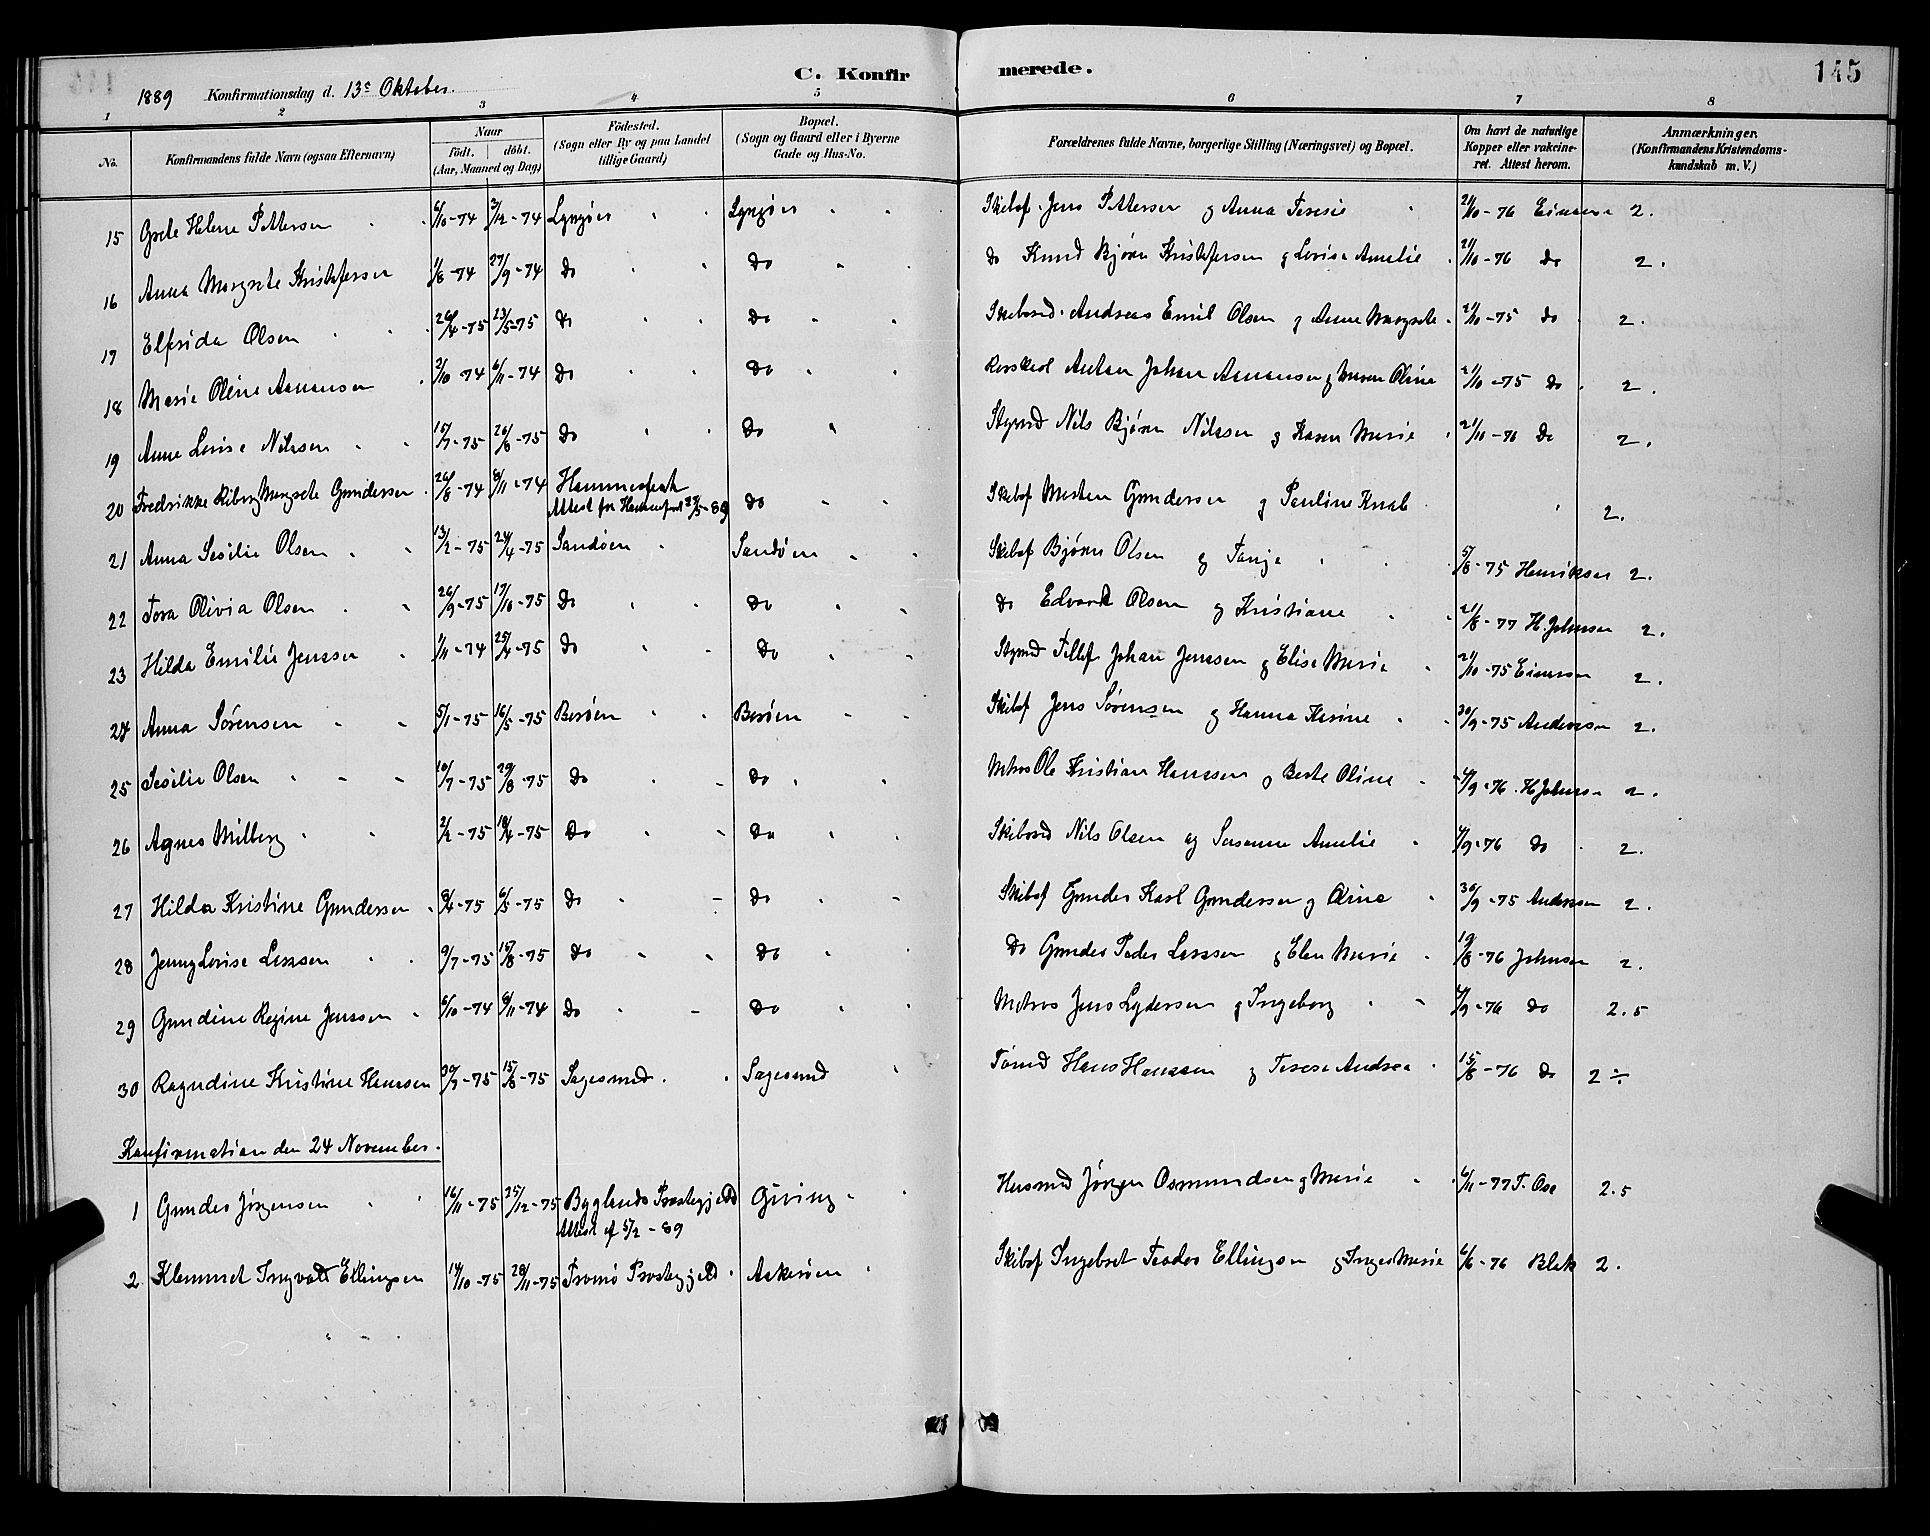 C. Konfirmerede. 145
1889 Konfirmationsdag d. 13de Oktober.
1 2 3 4 5 6 7 8
No. Konfirmandens fulde Navn (ogsaa Efternavn) Naar Födt. döbt. (Aar, Maaned og Dag) Födested. (Sogn eller By og paa Landet tillige Gaard) Bopæl. (Sogn og Gaard eller i Byerne Gade og Hus-No. Forældrenes fulde Navne, borgerlige Stilling (Næringsvei) og Bopæl. Om havt de naturlige Kopper eller vakcineret. Attest herom. Anmærkninger. (Konfirmandens Kristendomskundskab m. V.)
15 Grete Helene Pettersen 6/10-74 3/12-74 Lyngöer Lyngöer Skibsf. Jens Pettersen og Anna Teresie 21/10-76 Einersen 2.
16 Anna Margrete Kristofersen 1/8-74 27/9-74 Do Do Do Knud Bjørn Kristofersen og Lovise Amelie 21/10-76 Do 2.
17 Elfrida Olsen 26/4-75 23/5-75 Do Do Andreas Emil Olsen og Anne Margrete 21/10-75 Do 2.
18 Marie Oline Aanonsen 2/10-74 6/11-74 Do Do Anton Johan Aanonsen og Maren Oline 21/10-75 Do 2.
19 Anne Lovise Nilssen 15/7-75 26/8-75 Do Do Styrmd Nils Bjørn Nilssen og Karen Marie 21/10-76 Do 2.
20 Fredrikke Margrete Gundersen 26/8-74 8/11-74 Hammerfest Do Skibsf Morten Gundersen og Pauline 2.
Attest fra Hammerfest -89
21 Anna Sesilie Olsen 13/2-75 24/4-75 Sandöen Sandöen Skibsf Bjørn Olsen og Tanja 5/8-75 Henriksen 2.
22 Tora Olivia Olsen 26/9-75 17/10-75 Do Do Do Edvard Olsen og Kristiane 21/8-77 H. Johnsen 2.
23 Hilda Emilie Jenssen 1/11-74 25/4-75 Do Do Styrmd Tellef Johan Jenssen og Elise Marie 21/10-75 Einersen 2.
24 Anna Sørensen 5/1-75 16/5-75 Boröen Boröen Skibsf Jens Sørensen og Hanna Karine 30/9-75 Andersen 2.
25 Sesilie Olsen 10/7-75 29/8-75 Do Do Matros Ole Kristian Hanssen og Berte Oline 4/9-76. H Johnsen 2.
26 Agnes Milberg 2/2-75 18/4-75 Do Do Nils Olsen og Susanne Amelie 4/9-76 Do 2.
27 Hilda Kristine Gundersen 8/4-75 6/5-75 Do Do Skibsf Gunder Karl Gundersen og 30/9-75 Andersen 2.
28 Jenny Lovise Larssen 9/7-75 15/8-75 Do Do Do Gunder Peder Larssen og Elen Marie 19/8-76 Johnsen 2.
29 Gundine Regine Jenssen 6/10-74 8/11-74 Do Do Matros Jens Lydersen og Ingeborg 4/9-76 Do 2.5
30 Ragndine Kristine Hanssen 30/7-75 15/8-75 Sagesund Sagesund Tömd Hans Hanssen og Terese Andrea 15/8-76 Do 2 ÷
Konfirmation den 24 November.
1 Gunder Jørgensen 16/11-75 25/12-75 Byglands Prestegjeld Giving Husmd Jörgen Osmundsen og Marie 6/11-77 T. Ose 2.5
Attest af 5/2-89
2 Klemmet Ingvald Ellingsen 14/10-75 28/11-75 Tromö Prestegjeld Askeröen Skibsf Ingebret Teodor Ellingsen og Inger Marie 6/6-76 Blak 2.